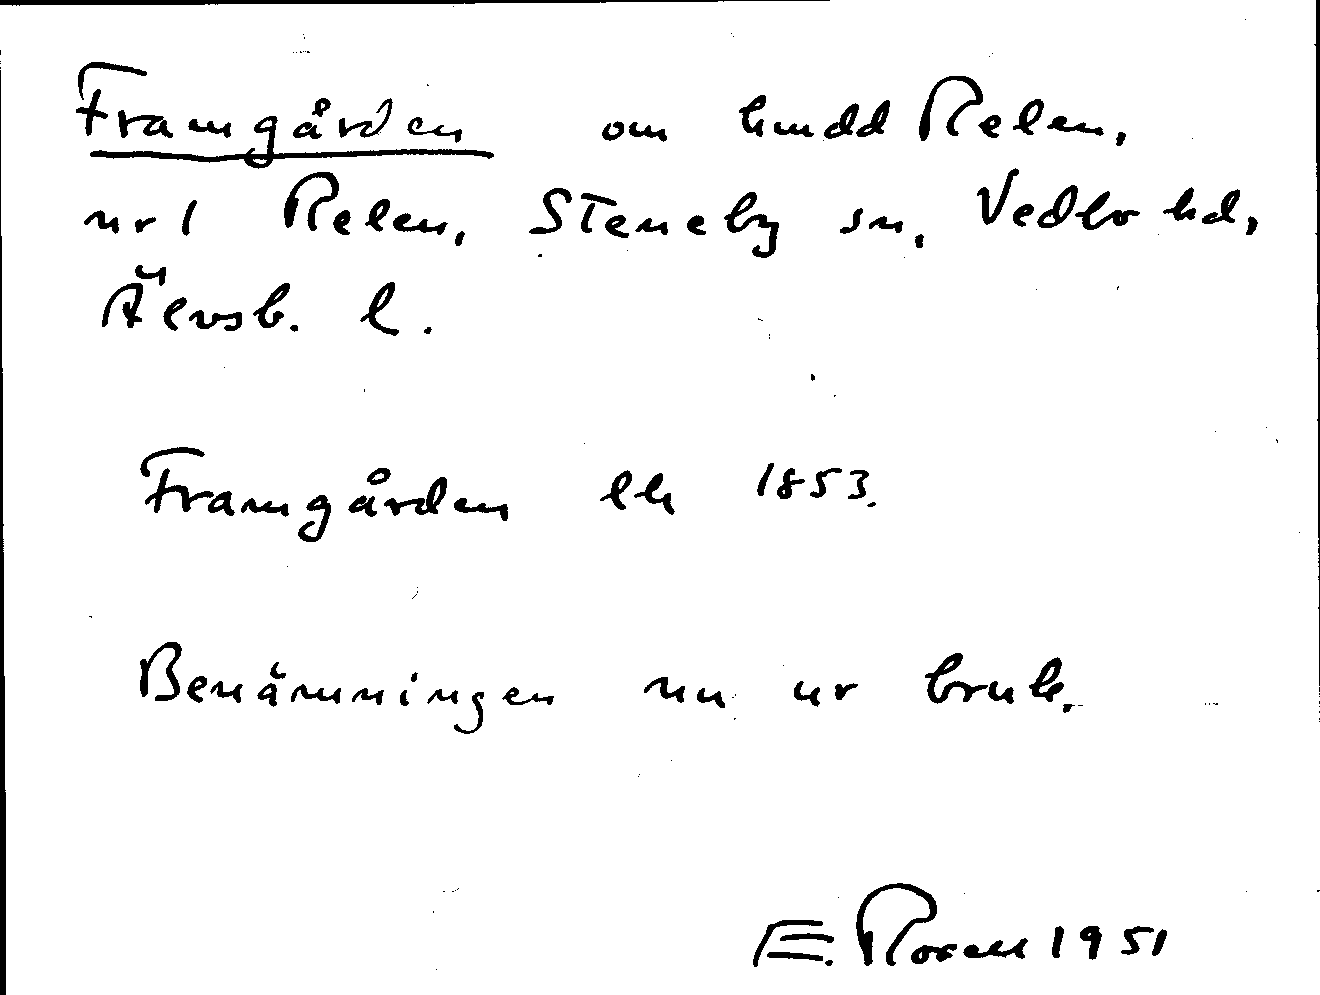 Framgården om hmdd Relen,
nr 1 Relen, Steneby sn, Vedbo hd,
Älvsb. l.
Framgården lk 1853.
Benämningen nu ur bruk.
E. Rosell 1951